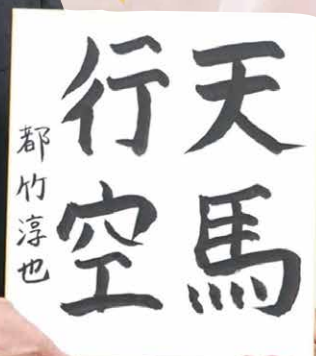 天馬
行空
都竹淳也